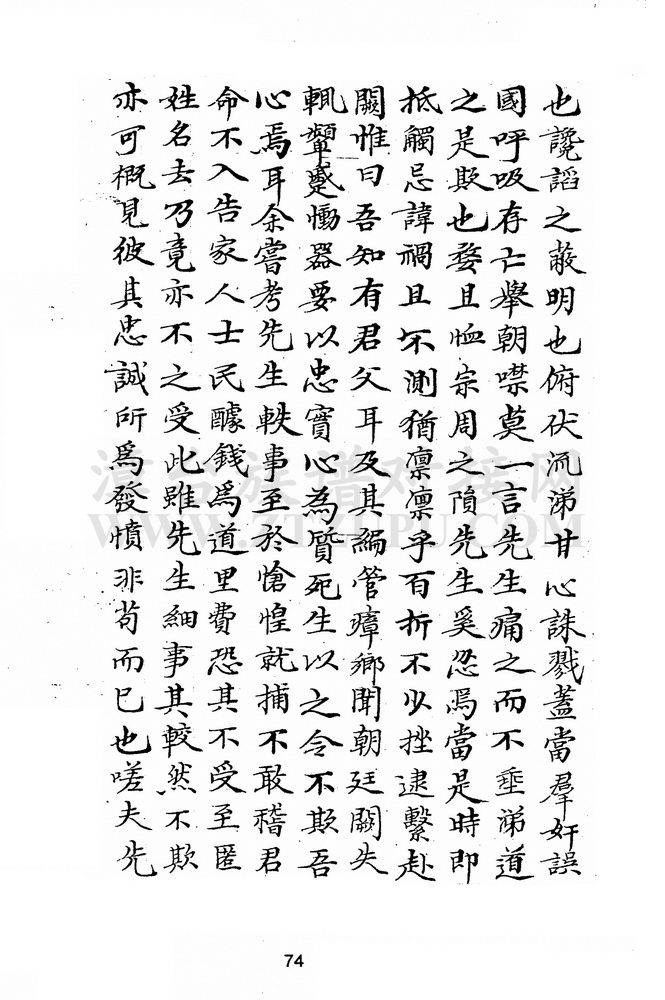 也讒謟之蔽明也俯伏流涕甘心誅戮蓋當羣奸誤
國呼吸存亡舉朝噤莫一言先生痛之而不垂涕道
之是欺也婺且恤宗周之隕先生奚忍焉當是時即
抵觸忌諱禍且不測猶凛凛乎百折不少挫逮繫赴
闕惟曰吾知有君父耳及其編管瘴鄉聞朝廷闕失
輒顰蹙慟器要以忠實心為質死生以之令不欺吾
心焉耳余嘗考先生軼事至於愴惶就捕不敢稽君
命不入告家人士民醵錢爲道里費恐其不受至匿
姓名去乃竟亦不之受此雖先生細事其較然不欺
亦可概見彼其忠誠所爲發憤非苟而已也嗟夫先
漳台族谱对接网
WWW.ZTZUPU.COM
74